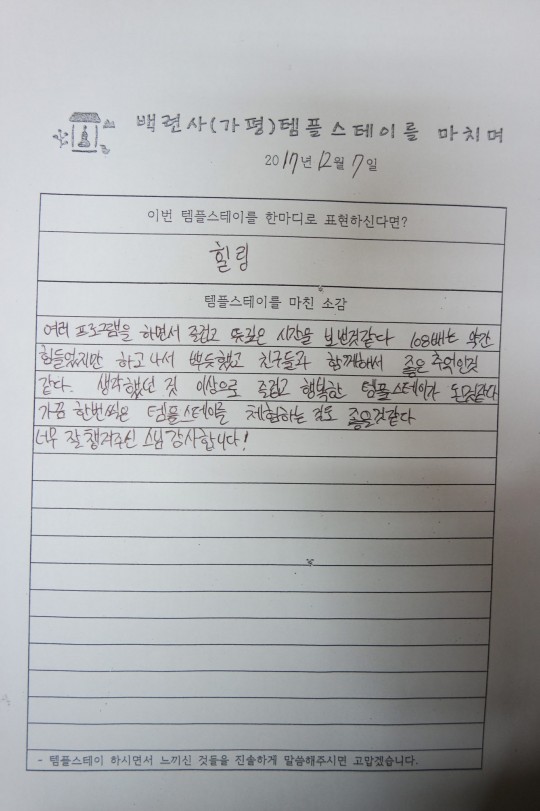 백련사(가평)템플스테이를 마치며
2017년 12월 7일
이번 템플스테이를 한마디로 표현하신다면?
힐링
템플스테이를 마친 소감
여러 프로그램을 하면서 즐겁고 뜻깊은 시간을 보낸것같다 108배는 약간
힘들었지만 하고 나서 뿌듯했고 친구들과 함께해서 좋은 추억인것
같다. 생각했던 것 이상으로 즐겁고 행복한 템플스테이가 된것같다
가끔 한번씩은 템플스테이를 체험하는 것도 좋을것같다
너무 잘 챙겨주신 스님 감사합니다!
- 템플스테이 하시면서 느끼신 것들을 진솔하게 말씀해주시면 고맙겠습니다.